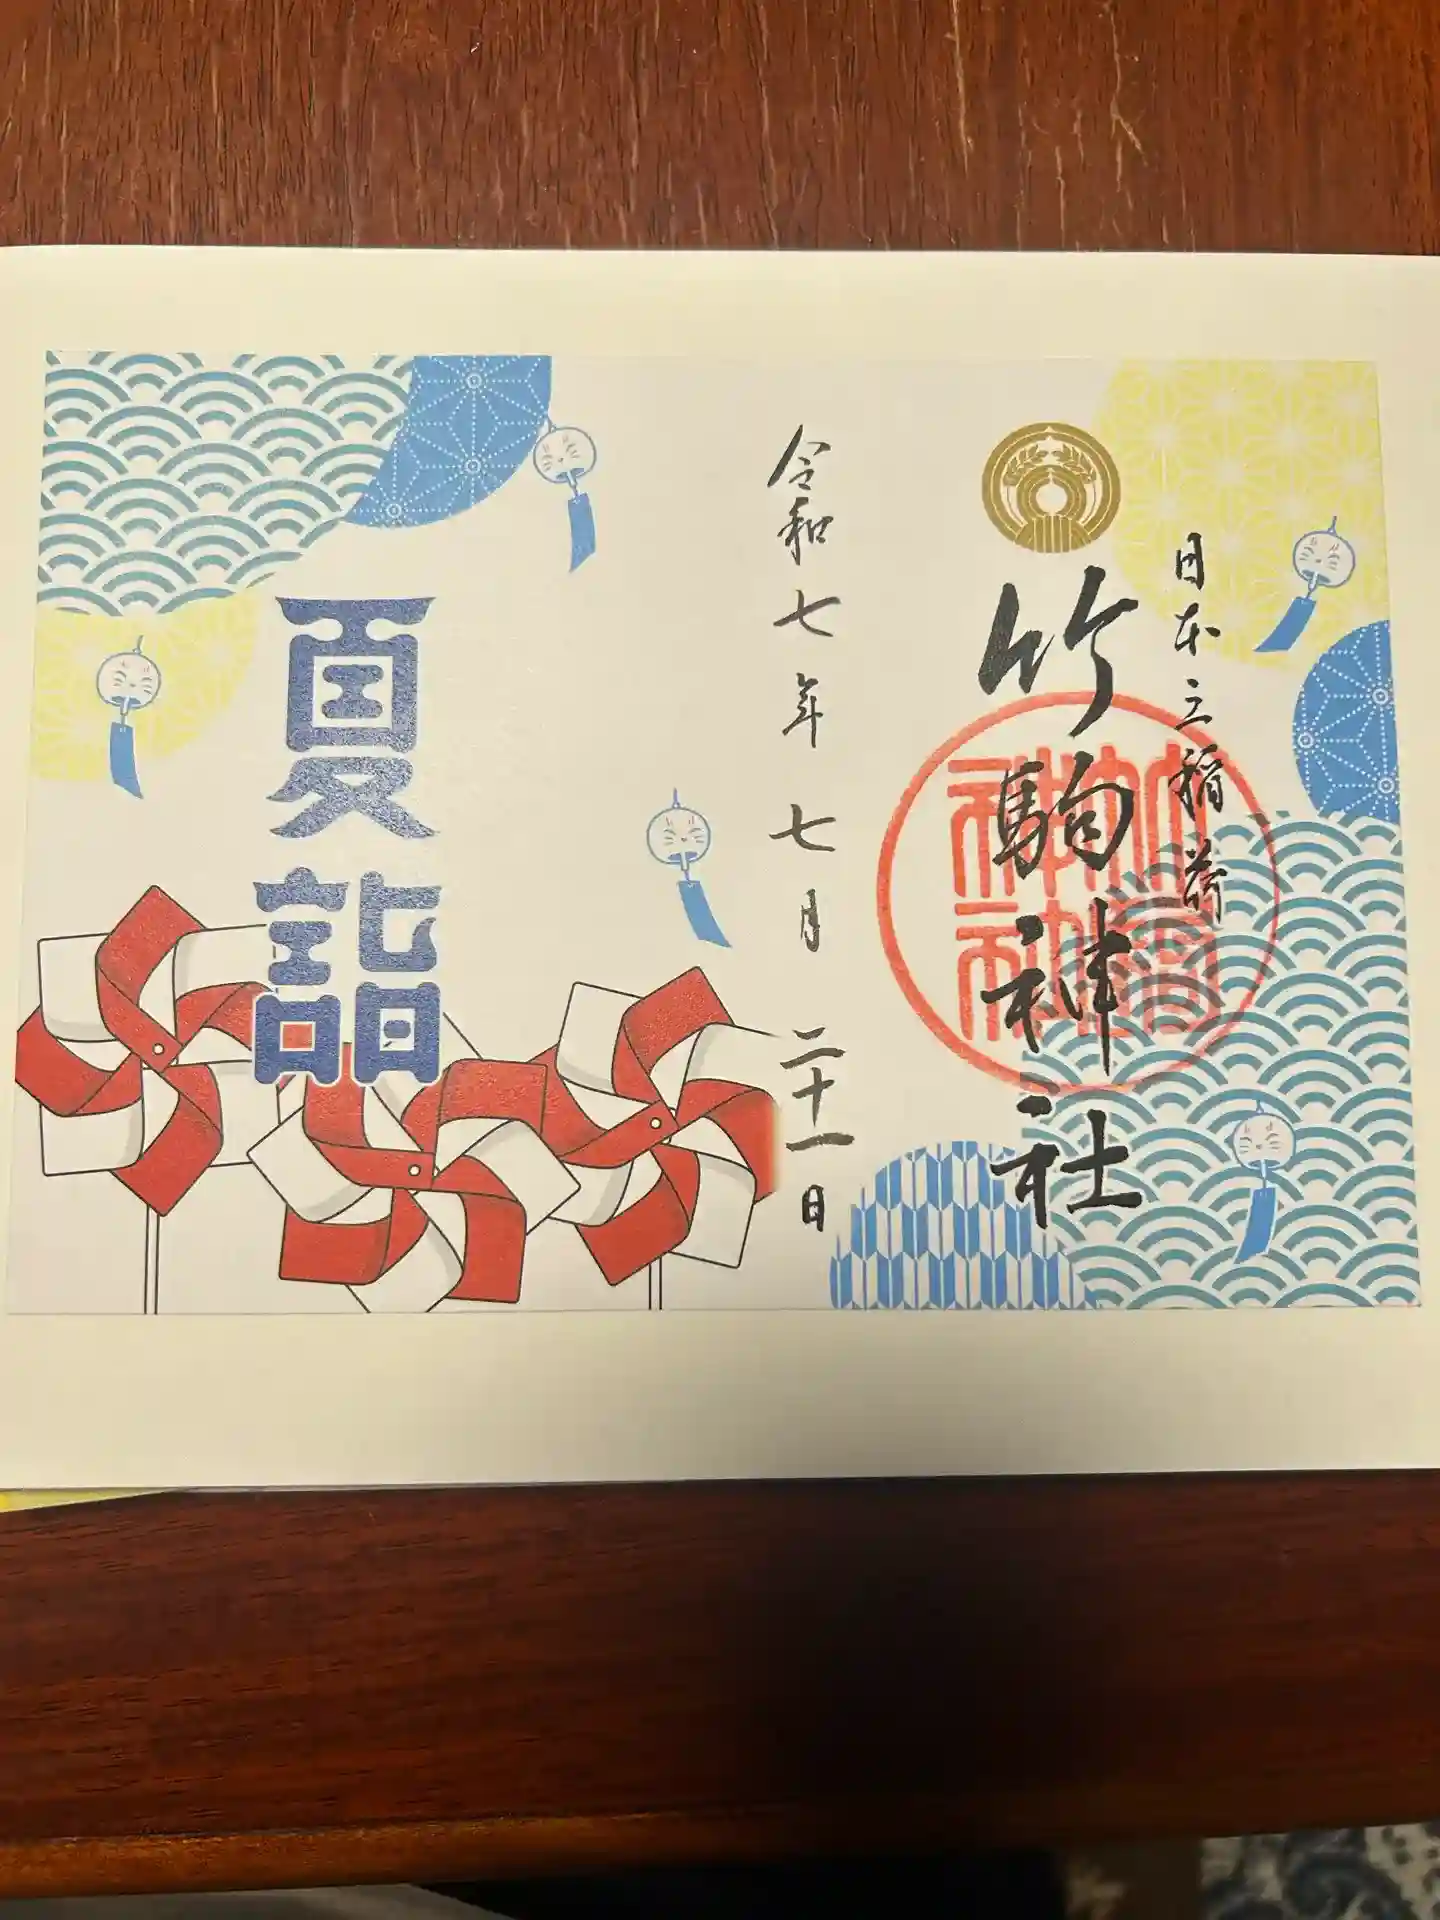 日本三稲荷
竹駒神社
竹駒神社
令和七年七月二十一日
夏詣